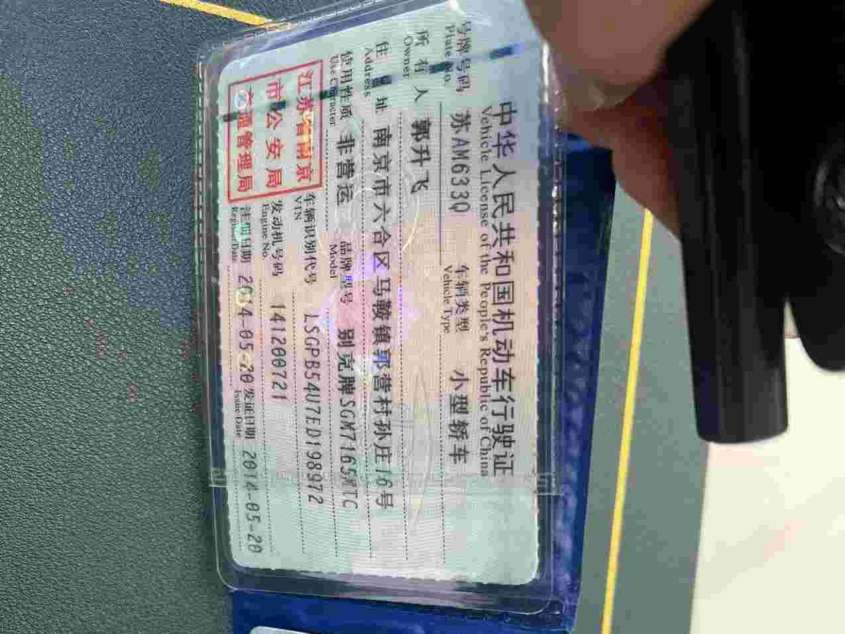 中华人民共和国机动车行驶证
Vehicle License of the People's Republic of China
号牌号码 苏AM633Q 车辆类型 小型轿车
Plate No. Vehicle Type
所有人 郭升飞
Owner
住址 南京市六合区马鞍镇郭营村孙庄16号
Address
使用性质 非营运 品牌型号 别克牌SGM7165MTC
Use Character Model
江苏省南京
市公安局
交通管理局
车辆识别代号 LSGPB54U7ED198972
VIN
发动机号码 141200721
Engine No.
注册日期 2014-05-20 发证日期 2014-05-20
Register Date Issue Date